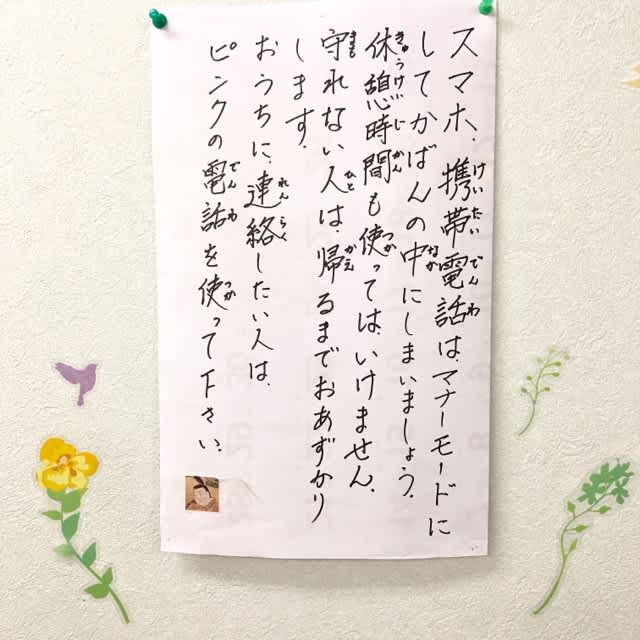 スマホ、携帯電話は、マナーモードに
してかばんの中にしまいましょう。
休憩時間も使ってはいけません。
守れない人は、帰るまでおあずかり
します。
おうちに、連絡したい人は、
ピンクの電話を使って下さい。